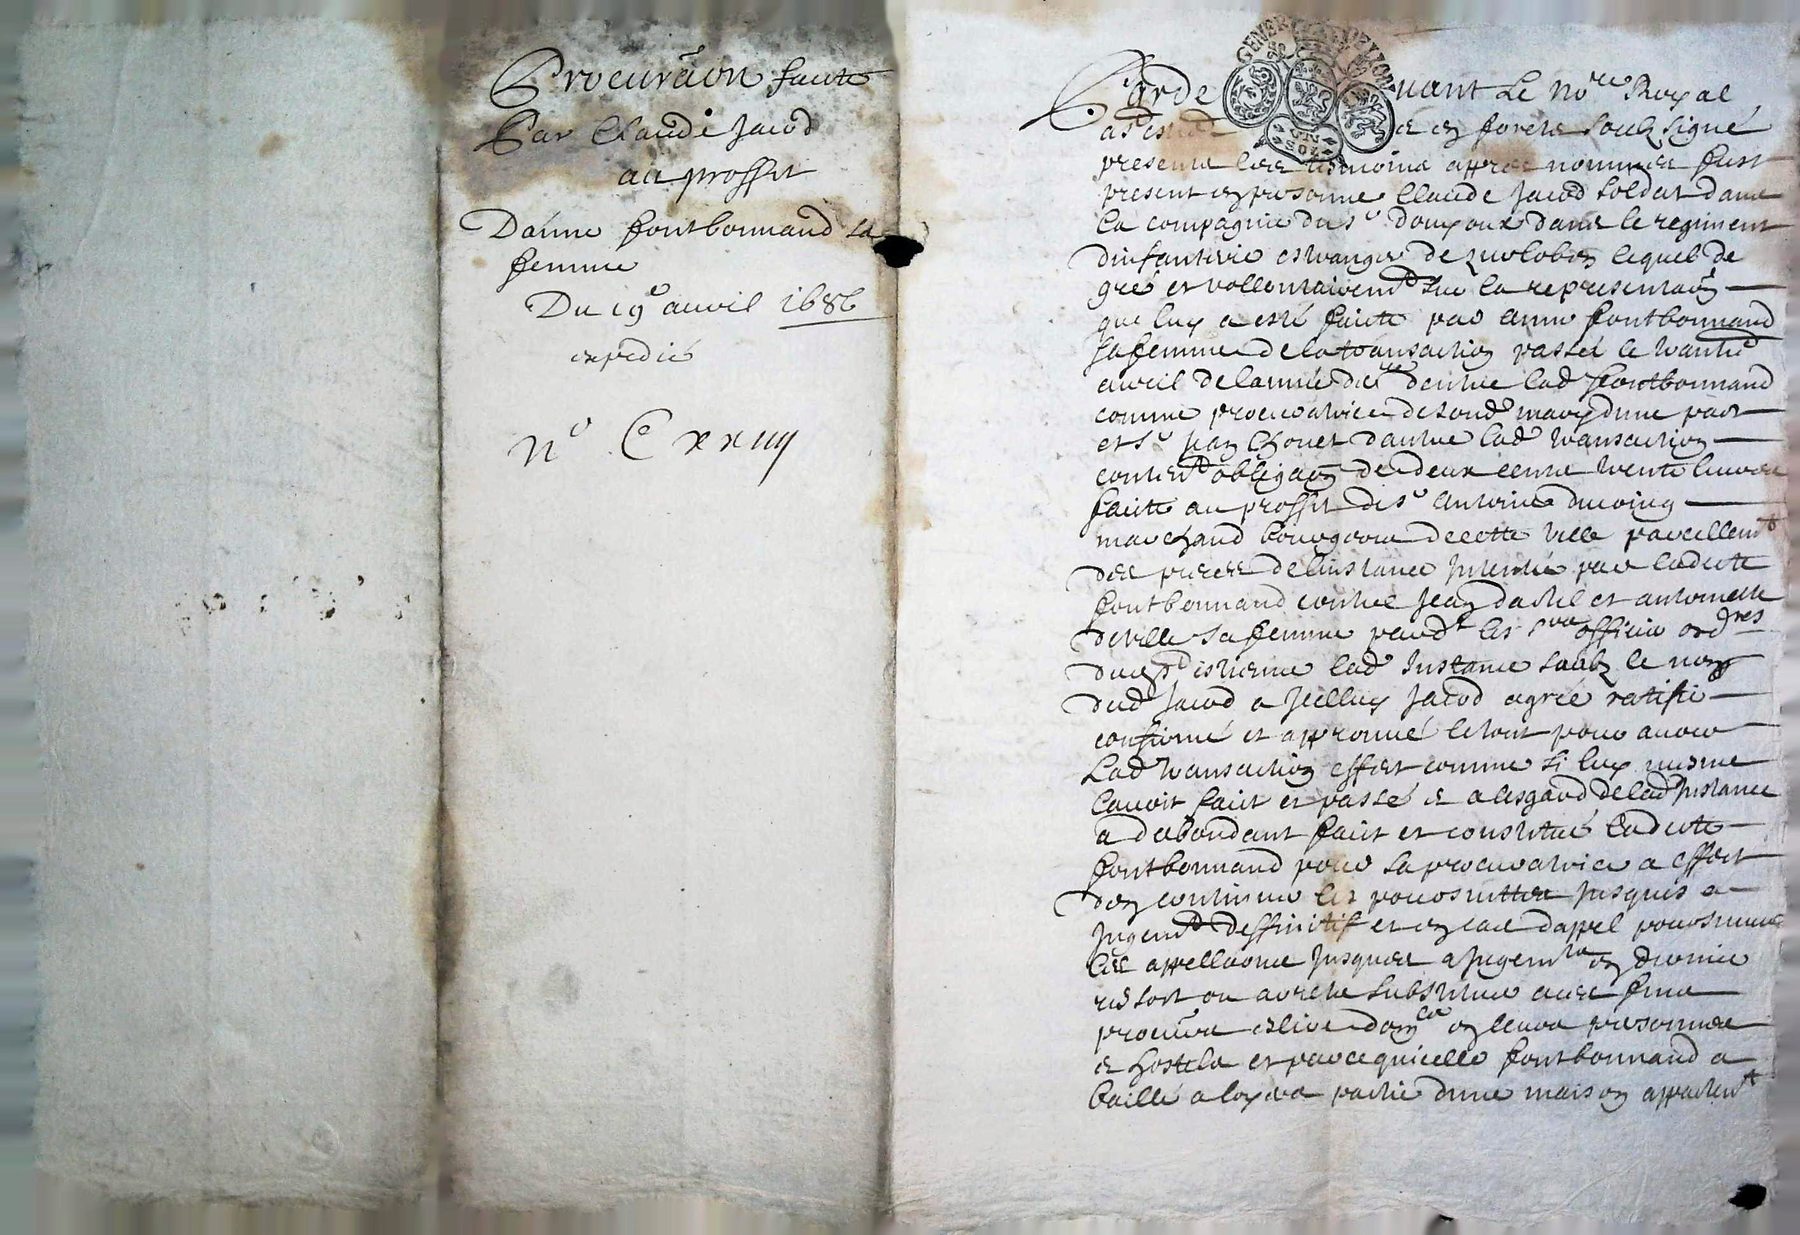 Procurãon faitte
Par Claude Jacod
au proffit
Danne fontbonnand sa
femme
Du 19e auril 1686
expedié
No Cxxiiij
GENER LYON
Par de uant Le nore Royal
a St estien et en forests soubz signé
presents les tesmoins appres nommes fust
present en personne Claude Jacod soldat dans
la compagnie du Sr douxoux dans le regiment
dinfanterie estranger de lequel de
gré et vollontairemt sur la representaõn
que luy a esté faitte par anne fontbonnand
sa femme de la transaction passée le trantie
auril de lannée dre entre lad fontbonnand
comme procuratrice de sond mary dune part
et Sr Jean Chouet dautre lad transaction
content obligaõn de deux cents trente liures
faitte au proffit de Sr antoine
marchand bourgeois de cette ville pareillemt
des pieces de linstance Intentée par ladicte
fontbonnand contre Jean dachel et antoinette
deville sa femme pardt les sres officiers ordres
dud St estienne lad Instance soubz le nom
dud Jacod a Icelluy Jacod agréé ratifié
confirmé et approuué le tout pour auoir
Lad transaction effect comme si luy mesme
lauoit fait et passé et a lesgard de lad Instance
a dabondant fait et constitué ladicte
fontbonnand pour sa procuratrice a effect
den continuer les poursuittes Jusques a
Jugemt deffinitif et en cas dappel poursuiure
les appellãons Jusques a Jugemt en dernier
ressort ou aultre substituer aues fins
procurrs eslire domlle en leurs personnes
et hostels et parce quicelle fontbonnand a
baillé a loyer partie dune maison appartent